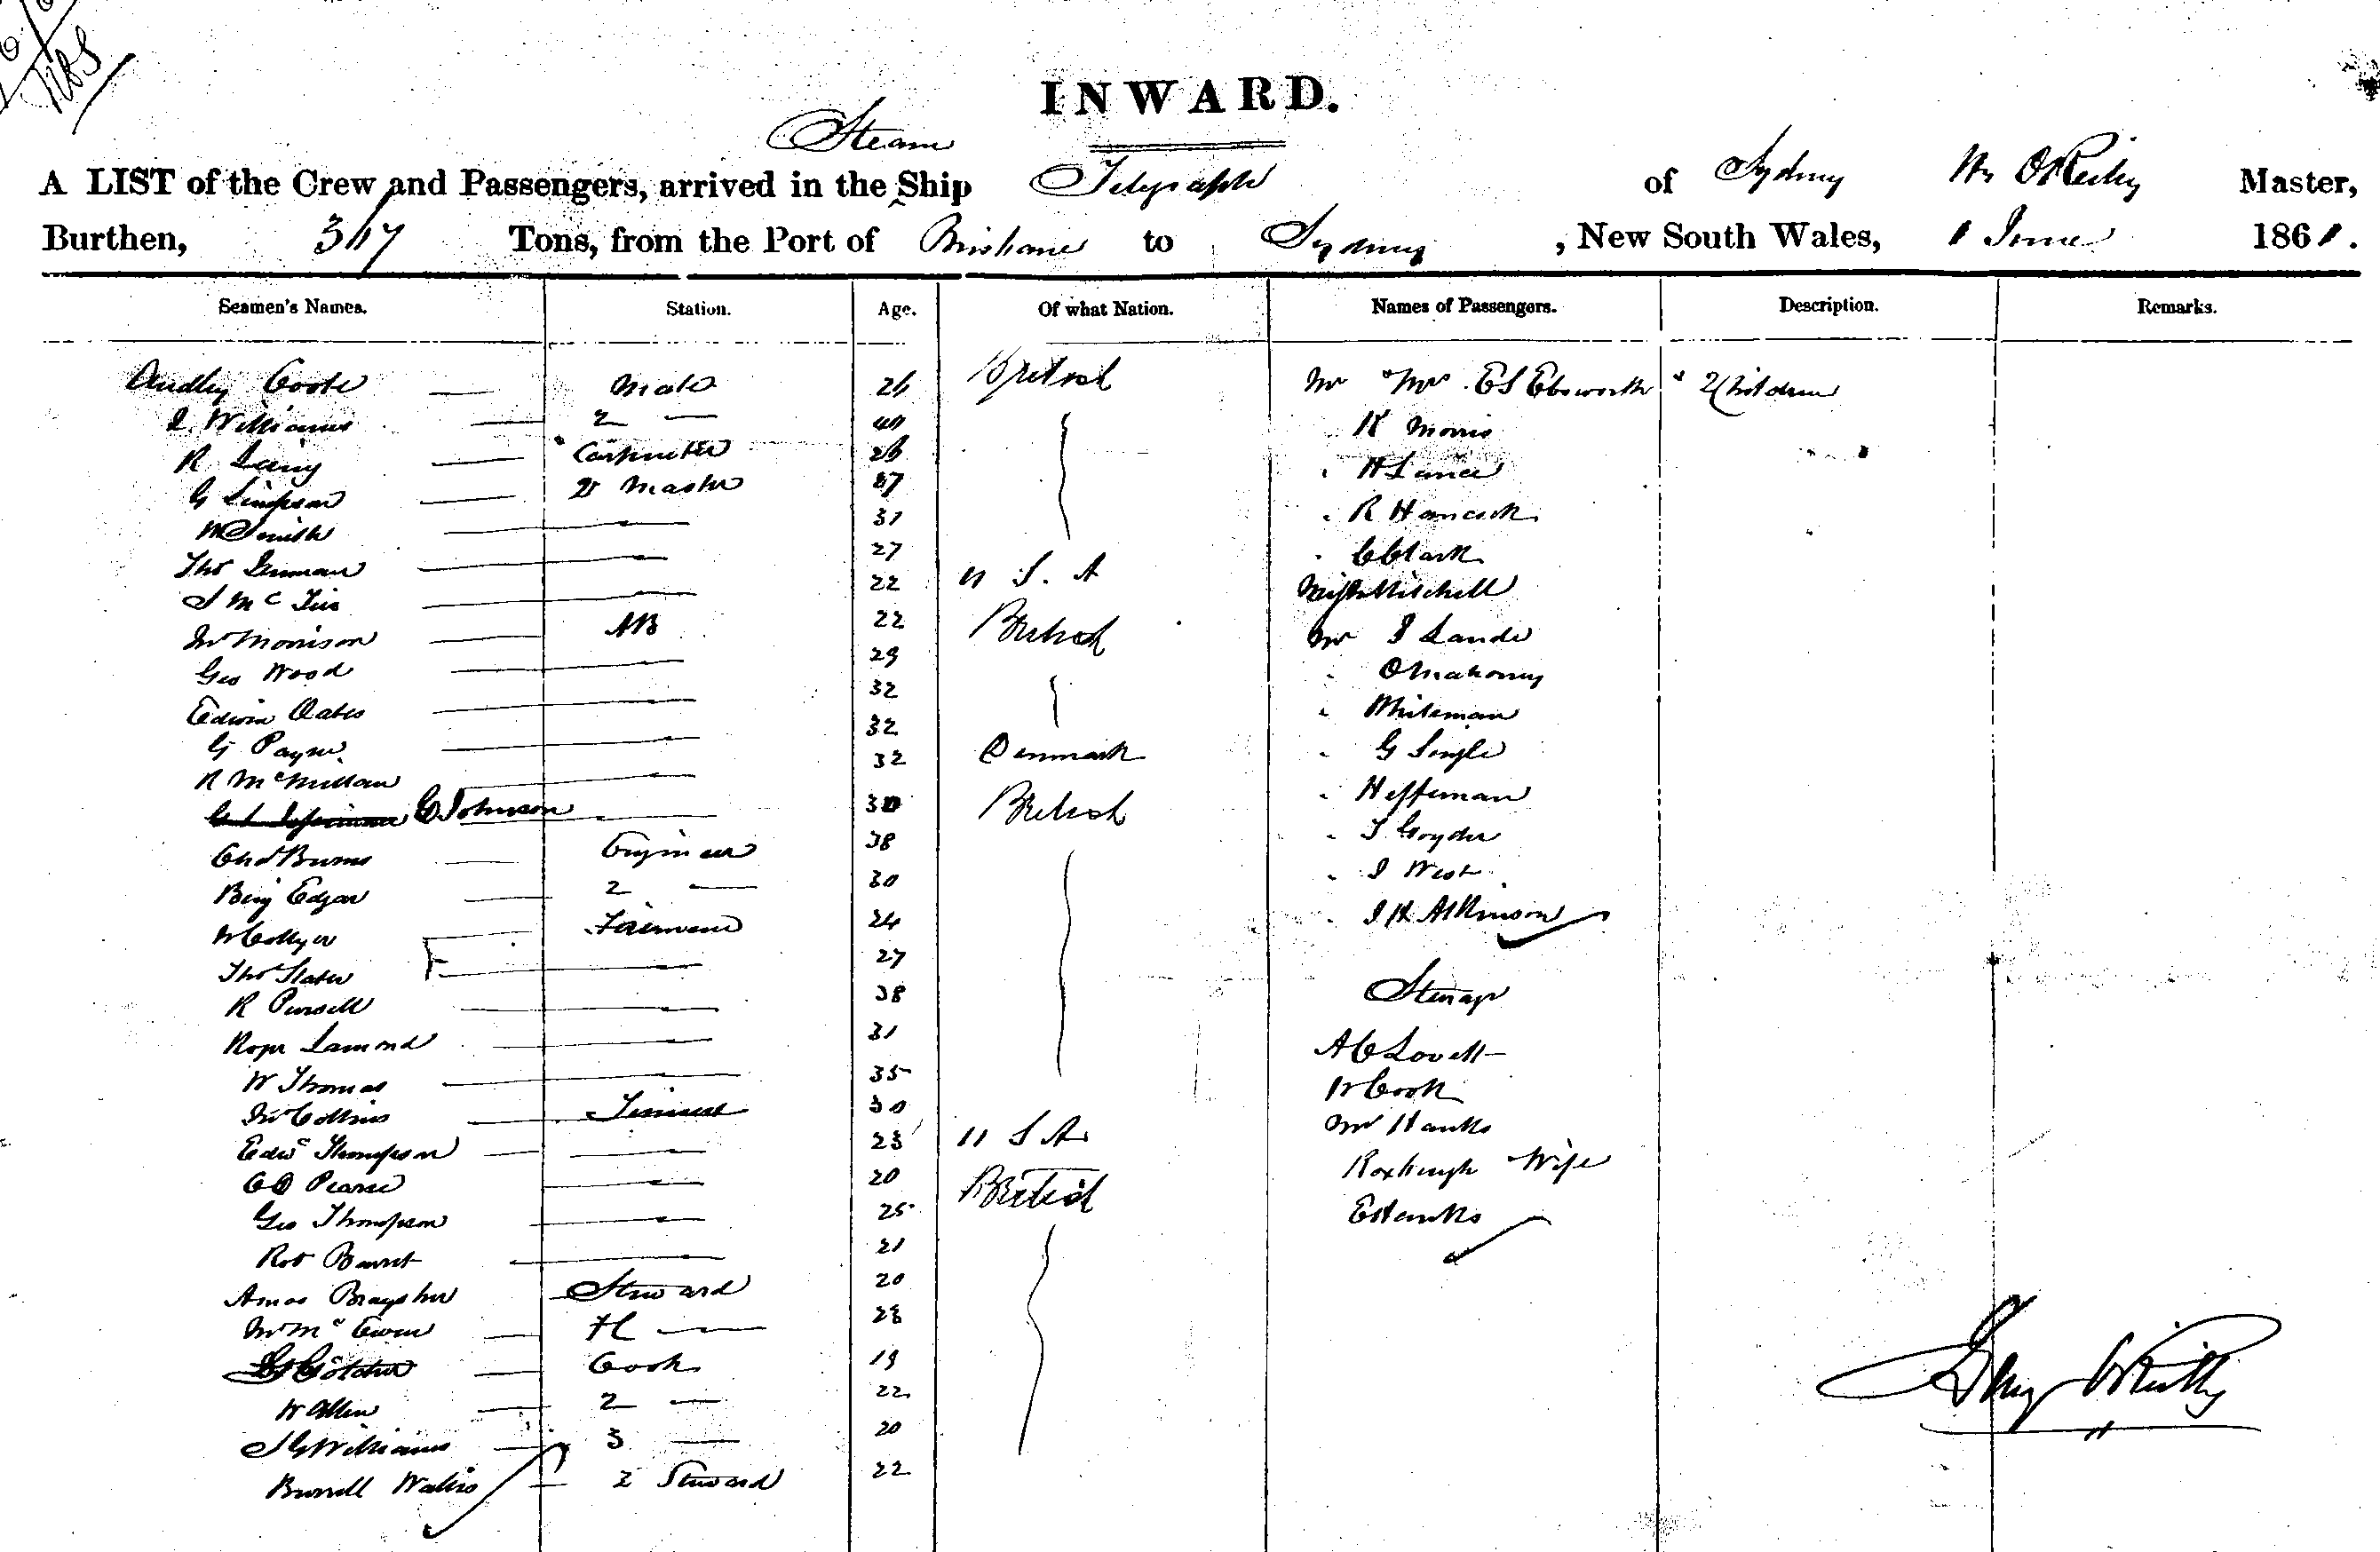 INWARD.
Steam
A LIST of the Crew and Passengers, arrived in the Ship Telegraph of Sydney Master,
Burthen, 367 Tons, from the Port of Brisbane to Sydney, New South Wales, 1 June 1861.
Seamen's Names. Station. Age. Of what Nation. Names of Passengers. Description. Remarks.
Audley Coote — Mate 26 British Mr & Mrs E S Ebsworth & 2 Children
J. Williams — 2 — 40 " R Morris
R Laing — Carpenter 26 " H Lance
G Simpson — Qr Master 37 " R Hancock
W Smith — 31 " C Clark
Thos — 27 Miss Mitchell
22 U. S. A
Jno Morrison — AB 22 British Mr J
Geo Wood — 29 " O Mahoney
Edwin Oates — 32 " Whiteman
G Payne — 32 " G Single
R McMillan — 32 Denmark " Heffernan
C Johnson — 30 British " J Goyder
Chas Burns — Engineer 38 " J West
Benj Edgar — 2 — 30 " J H Atkinson
W Collyer — Fireman 24
Thos Slater — 27 Steerage
R Pursell — 38 A C Lovett
Roger Lamond — 31 W Cook
W Thomas — 35 Mr Hanks
Jno Collins — 30 Roxburgh & Wife
Edwd Thompson — 23 U S A E Hanks
Pearse — 20 British
Geo Thompson — 25
Rob — 21
Amos Braysher Steward 20
Jno McEwen — 28
Cook 19
W Allen — 2 — 22
J G Williams — 3 — 20
Burrell — 2 Steward 22